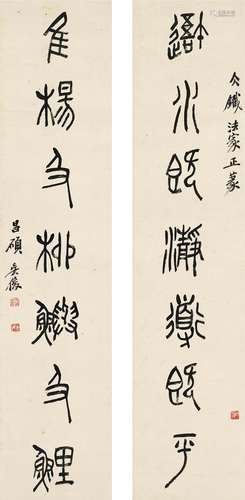 鐵法家正篆
水既瀞導既平
隹楊及柳鱮及鯉
昌碩吳俊